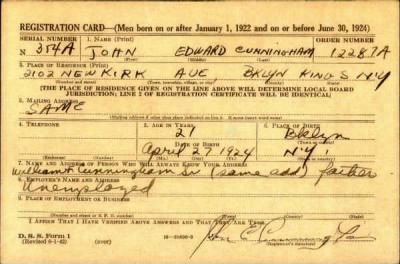 REGISTRATION CARD—(Men born on or after January 1, 1922 and on or before June 30, 1924)
SERIAL NUMBER 1. NAME (Print) ORDER NUMBER
N 354A JOHN EDWARD CUNNINGHAM 12287A
(First) (Middle) (Last)
2. PLACE OF RESIDENCE (Print)
2102 NEWKIRK AVE BKLYN KINGS N.Y
(Number and street) (Town, township, village, or city) (County) (State)
[THE PLACE OF RESIDENCE GIVEN ON THE LINE ABOVE WILL DETERMINE LOCAL BOARD
JURISDICTION; LINE 2 OF REGISTRATION CERTIFICATE WILL BE IDENTICAL]
3. MAILING ADDRESS
SAME
[Mailing address if other than place indicated on line 2. If same insert word same]
4. TELEPHONE 5. AGE IN YEARS 6. PLACE OF BIRTH
21 Bklyn
DATE OF BIRTH (Town or county)
April 27 1924 N.Y.
(Exchange) (Number) (Mo.) (Day) (Yr.) (State or country)
7. NAME AND ADDRESS OF PERSON WHO WILL ALWAYS KNOW YOUR ADDRESS
William Cunningham Sr (same add) father
8. EMPLOYER'S NAME AND ADDRESS
Unemployed
9. PLACE OF EMPLOYMENT OR BUSINESS
(Number and street or R. F. D. number) (Town) (County) (State)
I AFFIRM THAT I HAVE VERIFIED ABOVE ANSWERS AND THAT THEY ARE TRUE.
D. S. S. Form 1
(Revised 6-1-42) (over) John E Cunningham
(Registrant's signature)